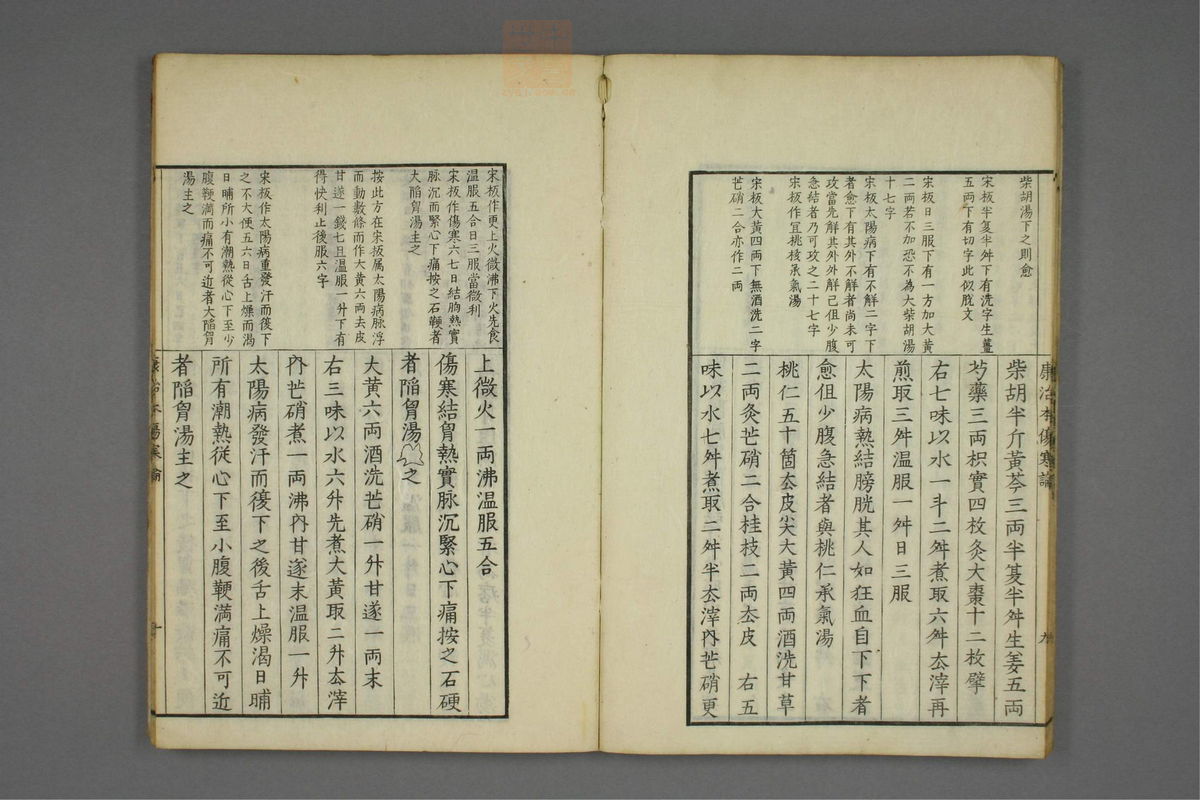 柴胡湯下之則愈
宋板半夏半舛下有洗字生薑
五両下有切字此似脫文
宋板日三服下有一方加大黃
二両若不加恐不為大柴胡湯
十七字
宋板太陽病下有不解二字下
者愈下有其外不解者尚未可
攻當先解其外外解已但少腹
急結者乃可攻之二十七字
宋板作宜桃核承氣湯
宋板大黃四両下無酒洗二字
芒硝二合亦作二両
康治本傷寒論
柴胡半斤黃芩三両半夏半舛生姜五両
芍藥三両枳實四枚灸大棗十二枚擘
右七味以水一斗二舛煮取六舛去滓再
煎取三舛温服一舛日三服
太陽病熱結膀胱其人如狂血自下下者
愈但少腹急結者與桃仁承氣湯
桃仁五十箇去皮尖大黃四両酒洗甘草
二両灸芒硝二合桂枝二両去皮　右五
味以水七舛煮取二舛半去滓內芒硝更
九
宋板作更上火微沸下火先食
温服五合日三服當微利
宋板作傷寒六七日結胸熱實
脉沉而緊心下痛按之石鞕者
大陷胷湯主之
按此方在宋板属太陽病脉浮
而動數條而作大黃六両去皮
甘遂一錢七且温服一升下有
得快利止後服六字
宋板作太陽病重發汗而復下
之不大便五六日舌上燥而渴
日晡所小有潮熱從心下至少
腹鞕満而痛不可近者大陷胷
湯主之
上微火一両沸温服五合
傷寒結胷熱實脉沉緊心下痛按之石硬
者陷胷湯主之
大黃六両酒洗芒硝一升甘遂一両末
右三味以水六升先煮大黃取二升去滓
內芒硝煮一両沸內甘遂末温服一升
太陽病發汗而復下之後舌上燥渴日晡
所有潮熱從心下至小腹鞕満痛不可近
者陷胷湯主之
康治本傷寒論
十